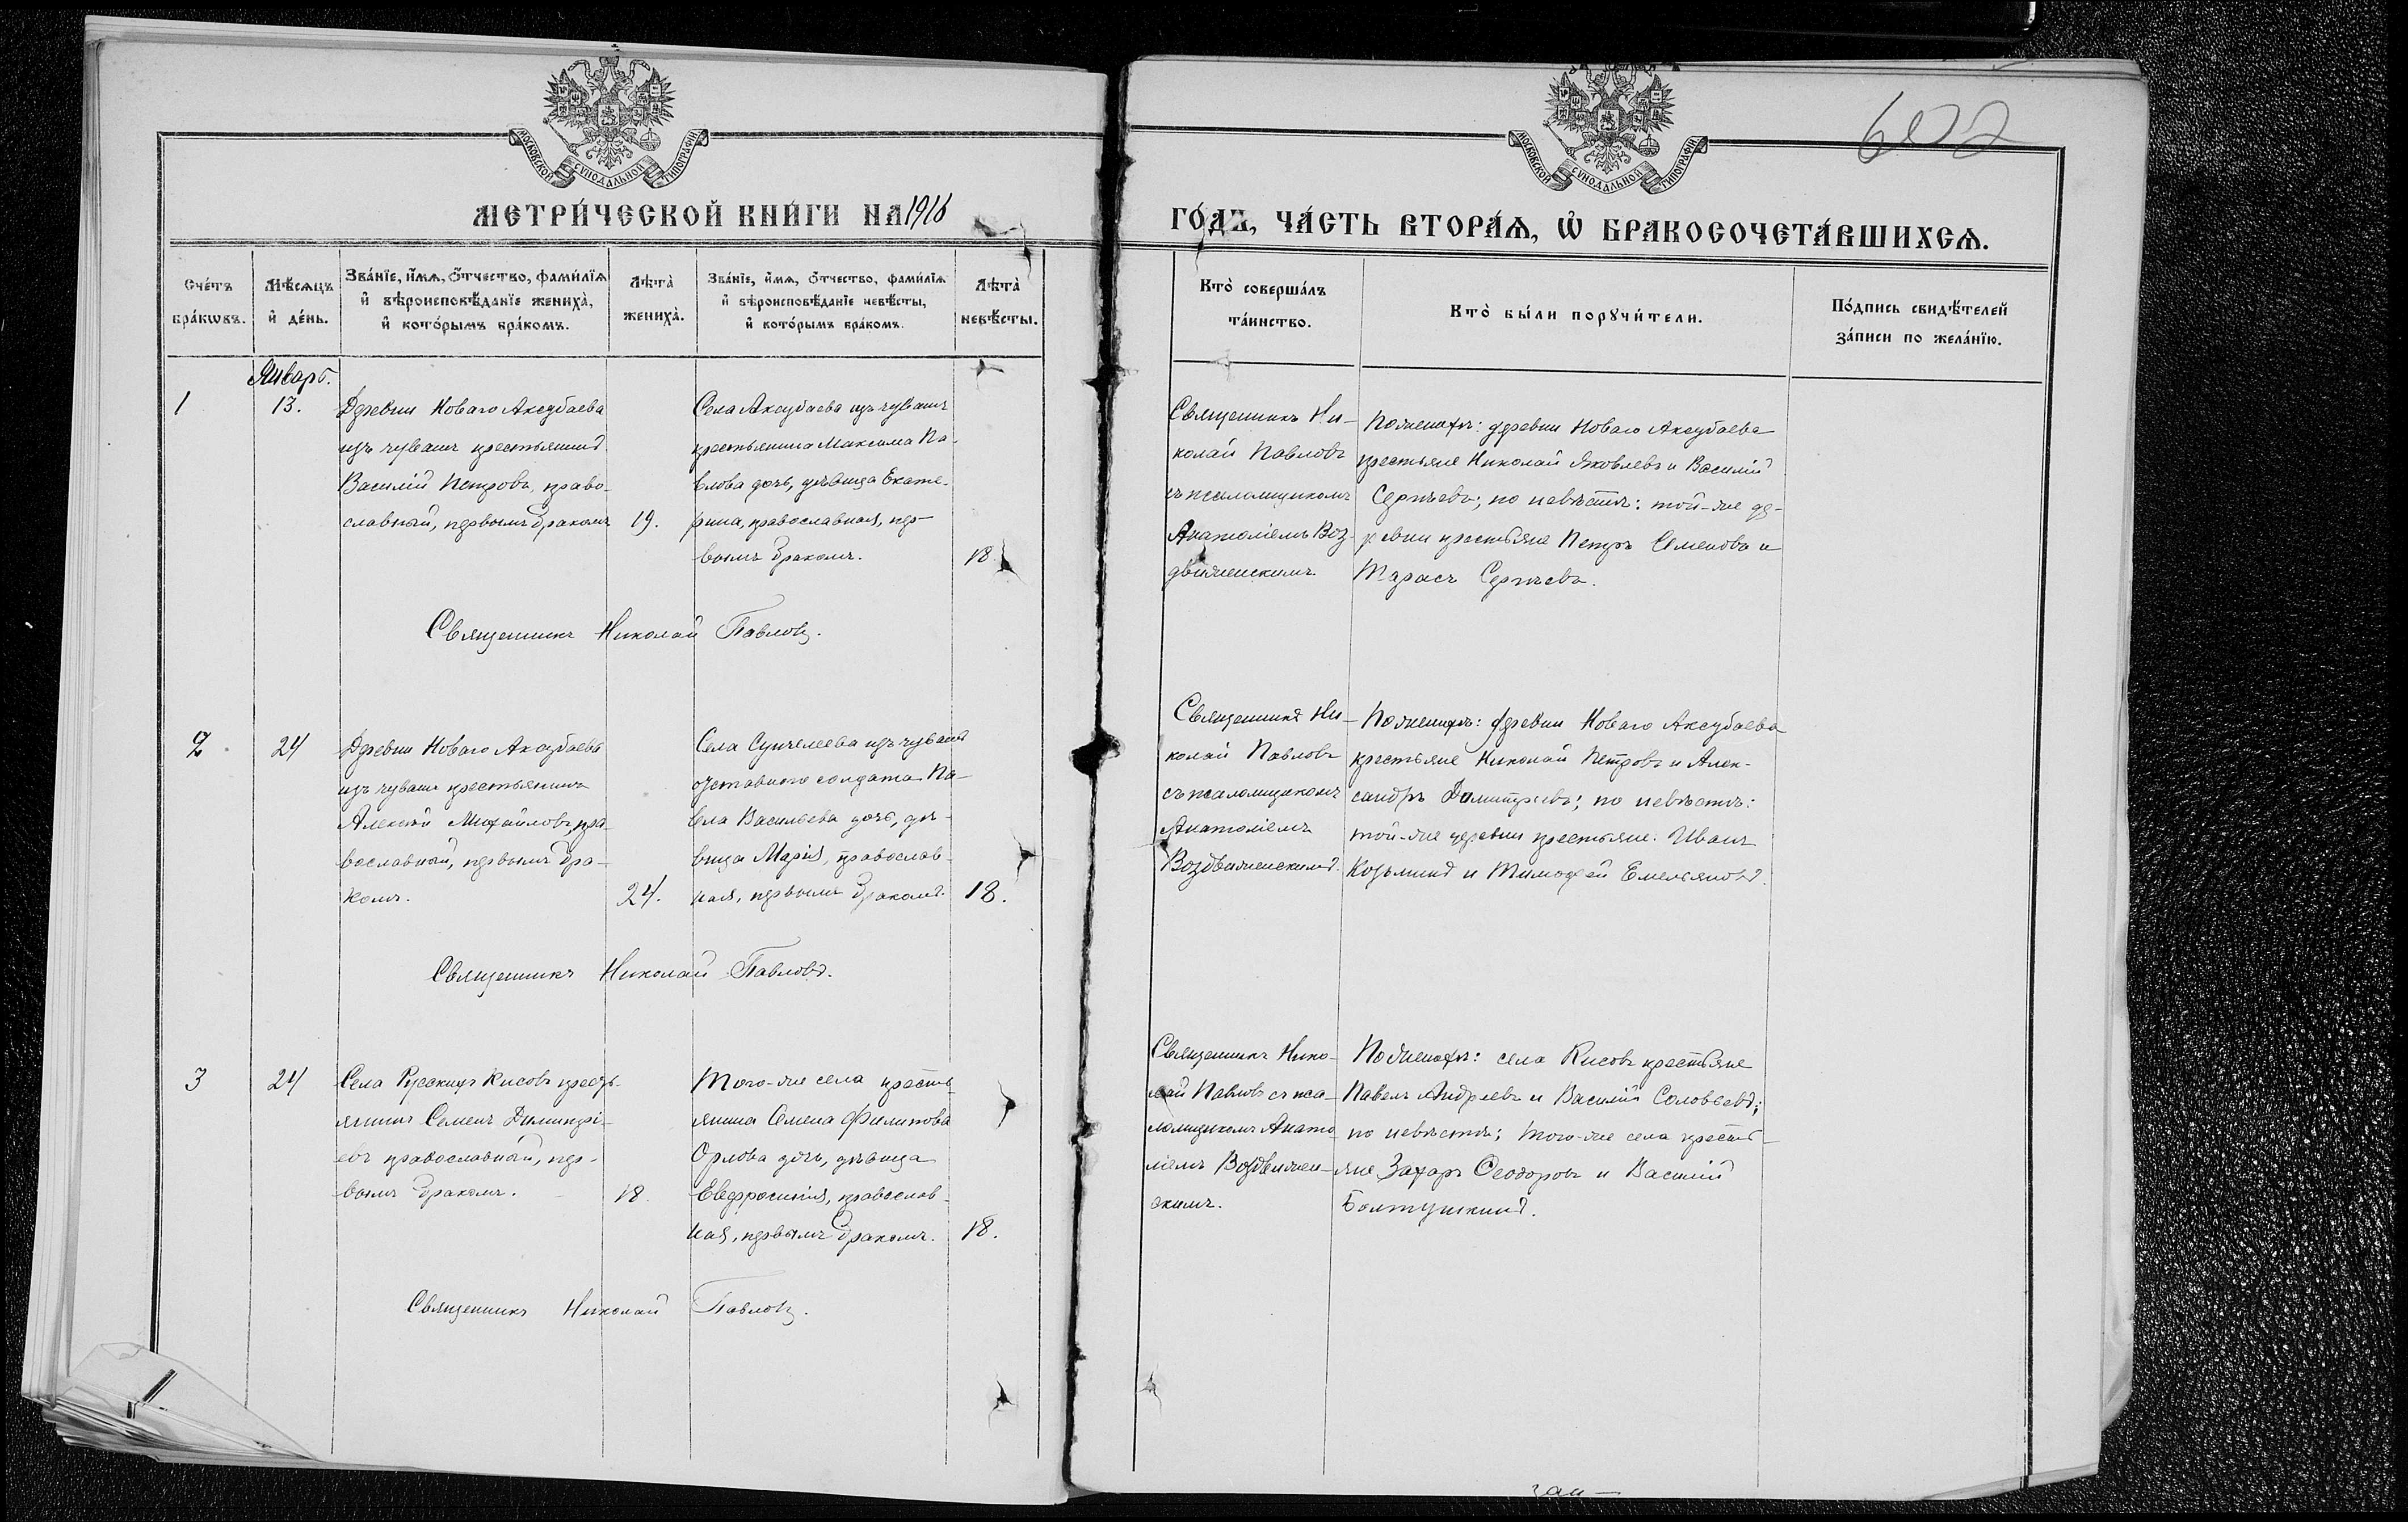 602
МОСКОВСКОЙ СѴНОДАЛЬНОЙ ТИПОГРАФІИ
МОСКОВСКОЙ СѴНОДАЛЬНОЙ ТИПОГРАФІИ
МЕТРИ́ЧЕСКОЙ КНИ́ГИ НА 1916
ГО́ДЪ, ЧА́СТЬ ВТОРА́Ѧ, Ѡ҆ БРАКОСОЧЕТА́ВШИХСѦ.
Сче́тъ
бра́кѡвъ.
Мѣ́сѧцъ
и҆ де́нь.
Зва́нїе, и҆́мѧ, ѻ҆́тчество, фами́лїѧ
и҆ вѣроисповѣ́данїе жениха̀,
и҆ кото́рымъ бра́комъ.
Лѣта̀
жениха̀.
Зва́нїе, и҆́мѧ, ѻ҆́тчество, фами́лїѧ
и҆ вѣроисповѣ́данїе невѣ́сты,
и҆ кото́рымъ бра́комъ.
Лѣта̀
невѣ́сты.
Кто̀ соверша́лъ
та́инство.
Кто̀ бы́ли порꙋчи́тели.
По́дпись свидѣ́телей
за́писи по жела́нїю.
Январь.
1
13.
Деревни Новаго Аксубаева
изъ чувашъ крестьянинъ
Василій Петровъ, право-
славный, первымъ бракомъ
19.
Села Аксубаева изъ чувашъ
крестьянина Максима Па-
влова дочь, дѣвица Екате-
рина, православная, пер-
вымъ бракомъ.
18
Священникъ Ни-
колай Павловъ
съ псаломщикомъ
Анатоліемъ Воз-
движенскимъ
По женихѣ: деревни Новаго Аксубаева
крестьяне Николай Яковлевъ и Василій
Сергѣевъ; по невѣстѣ: той-же де-
ревни крестьяне Петръ Семеновъ и
Тарасъ Сергѣевъ.
Священникъ Николай Павловъ.
2.
24
Деревни Новаго Аксубаева
изъ чувашъ крестьянинъ
Алексѣй Михайловъ, пра-
вославный, первымъ бра-
комъ.
24.
Села Сунчелеева изъ чувашъ
отставного солдата Па-
вла Васильева дочь, дѣ-
вица Марія, православ-
ная, первымъ бракомъ.
18.
Священникъ Ни-
колай Павловъ
съ псаломщикомъ
Анатоліемъ
Воздвиженскимъ.
По женихѣ: деревни Новаго Аксубаева
крестьяне Николай Петровъ и Алек-
сандръ Димитріевъ; по невѣстѣ:
той-же деревни крестьяне: Иванъ
Козьминъ и Тимофей Емельяновъ.
Священникъ Николай Павловъ.
3
24
Села Русскихъ Кисовъ кресть-
янинъ Семенъ Димитрі-
евъ православный, пер-
вымъ бракомъ.
18.
Того-же села кресть-
янина Семена Филиппова
Орлова дочь, дѣвица
Евфросинія, православ-
ная, первымъ бракомъ.
18.
Священникъ Нико-
лай Павловъ съ пса-
ломщикомъ Анато-
ліемъ Воздвижен-
скимъ.
По женихѣ: села Кисовъ крестьяне
Павелъ Андреевъ и Василій Соловьевъ;
по невѣстѣ: того-же села кресть-
яне Захаръ Ѳеодоровъ и Василій
Болтушкинъ.
Священникъ Николай Павловъ.